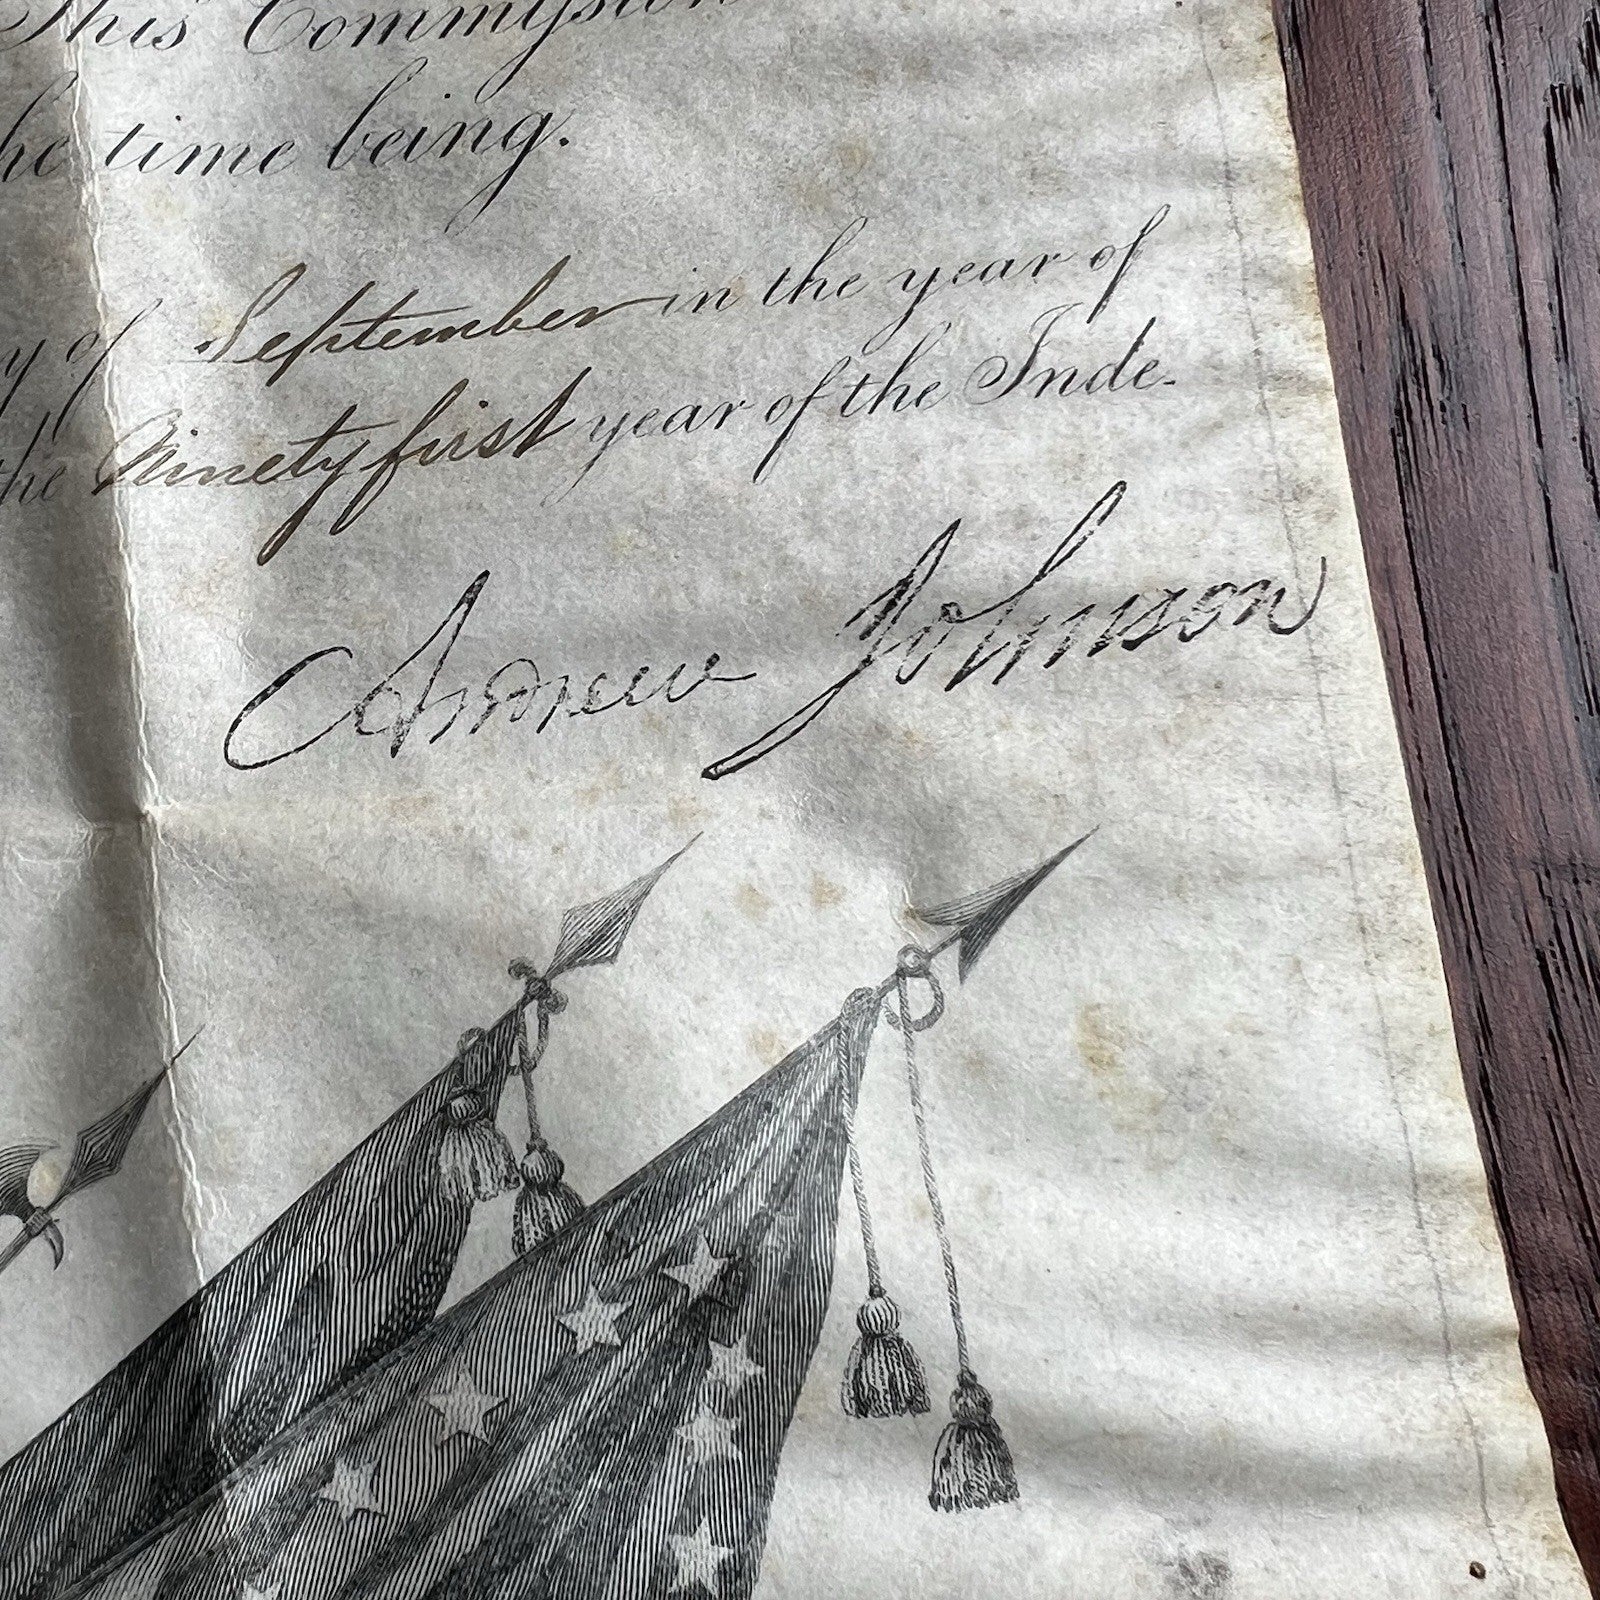 This Commission
he time being.
y of September in the year of
the Ninety first year of the Inde-
Andrew Johnson